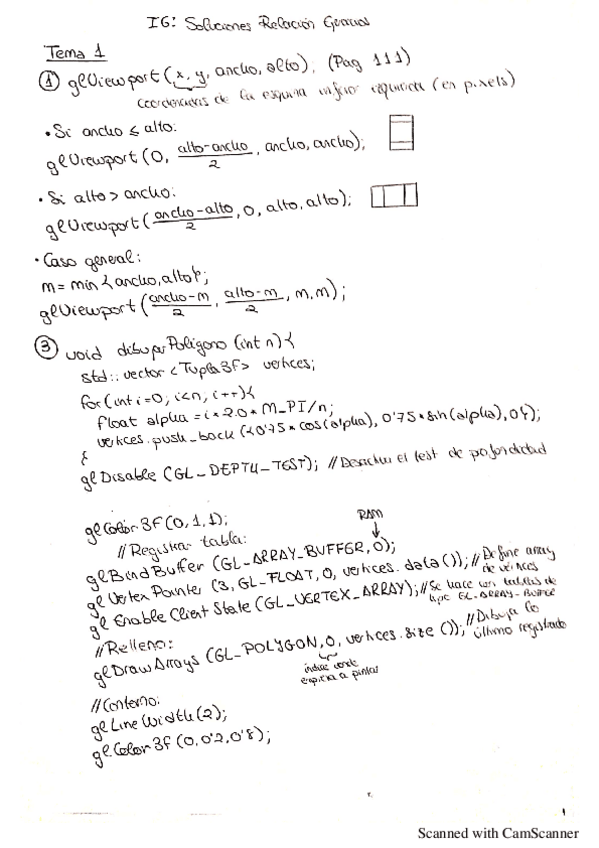 IG: Soluciones Relación General
Tema 1
① glViewport(x, y, ancho, alto); (Pag 111)
coordenadas de la esquina inferior izquierda (en pixels)
• Si ancho ≤ alto:
glViewport(0, (alto-ancho)/2, ancho, ancho);
• Si alto > ancho:
glViewport((ancho-alto)/2, 0, alto, alto);
• Caso general:
m = min{ancho, alto};
glViewport((ancho-m)/2, (alto-m)/2, m, m);
③ void dibujarPoligono (int n){
std::vector <Tupla3f> vertices;
for(int i=0; i<n; i++){
float alpha = i*2.0*M_PI/n;
vertices.push_back({0'75*cos(alpha), 0'75*sin(alpha), 0});
}
glDisable (GL_DEPTH_TEST); //Desactiva el test de profundidad
glColor3f(0,1,1);
RAM
//Registrar tabla:
glBindBuffer (GL_ARRAY_BUFFER, 0);
glVertexPointer (3, GL_FLOAT, 0, vertices.data()); //Define array de vértices
glEnableClientState (GL_VERTEX_ARRAY); //Se hace con tablas de tipo GL_ARRAY_BUFFER
//Relleno:
glDrawArrays (GL_POLYGON, 0, vertices.size()); //Dibuja lo último registrado
índice donde
empieza a pintar
//Contorno:
glLineWidth(2);
glColor3f(0,0'2,0'8);
1
Scanned with CamScanner